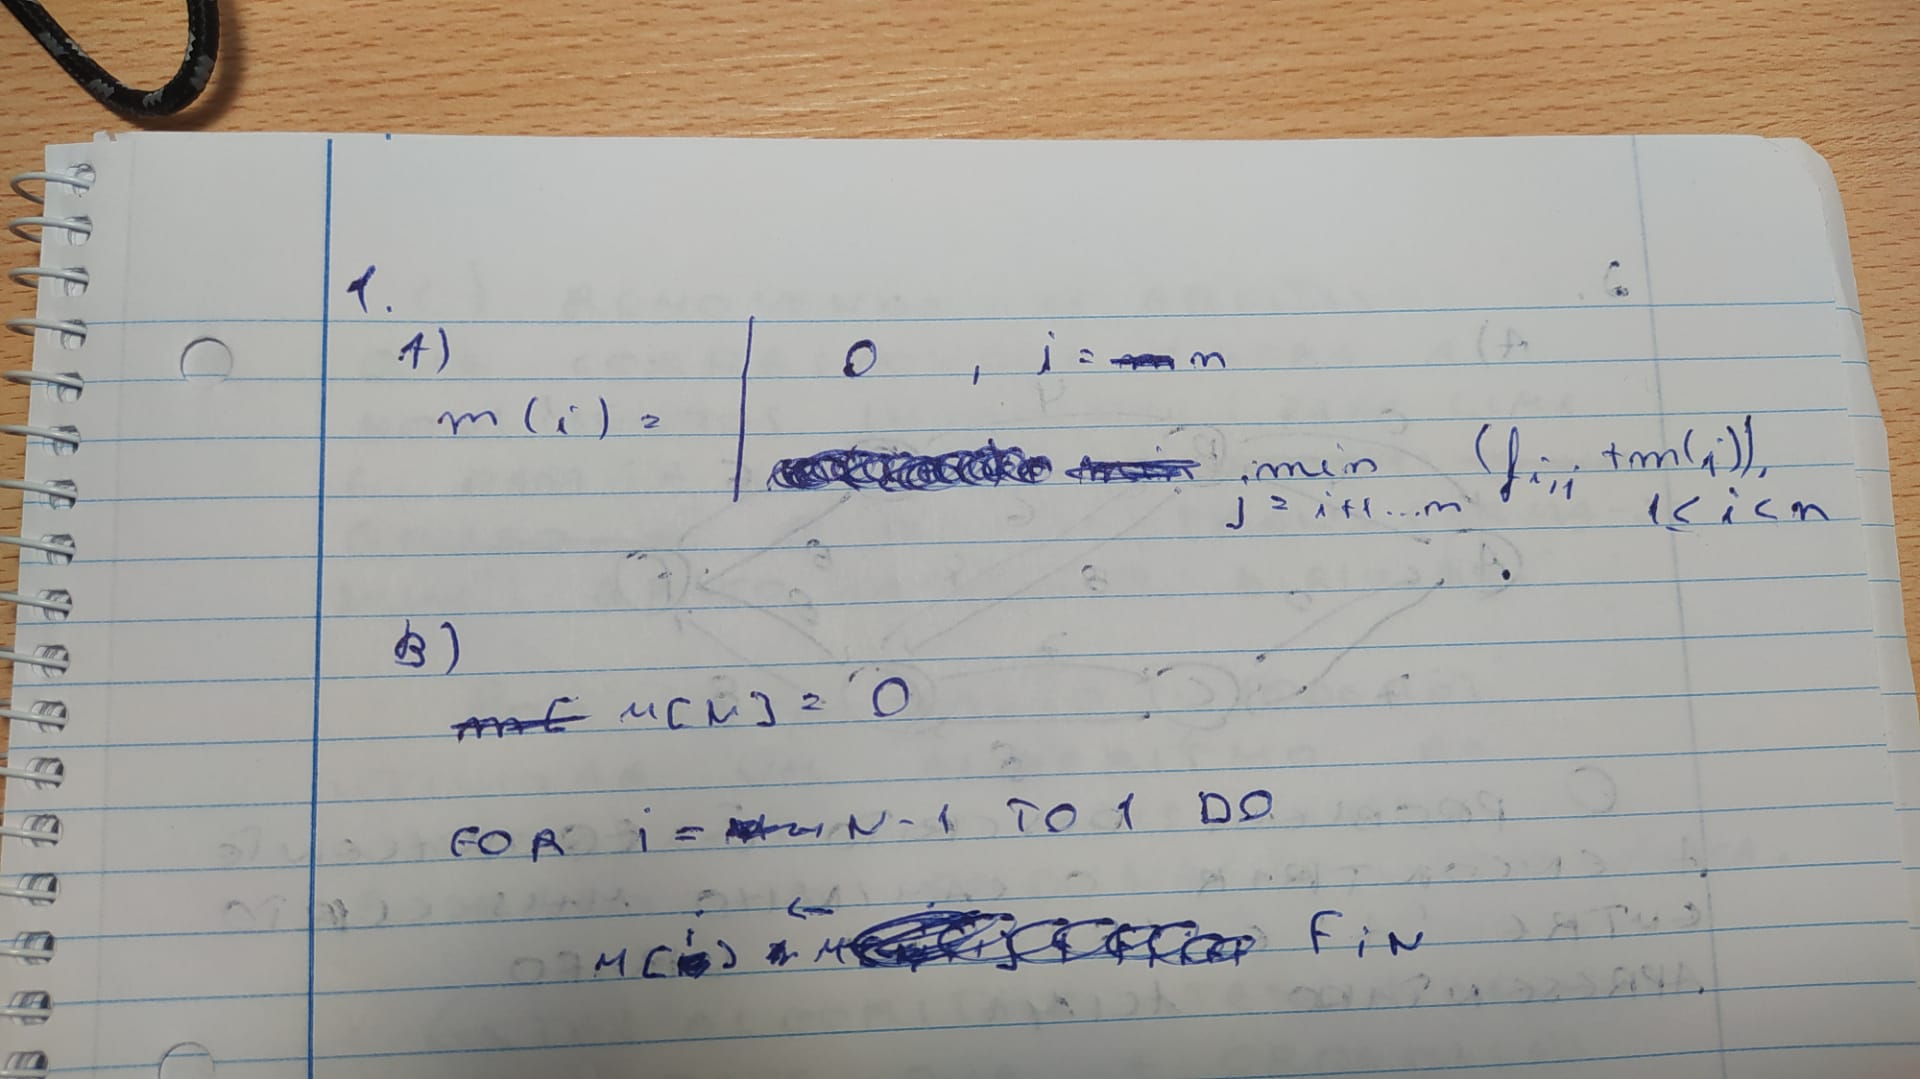 1.
A)
m(i) = | 0 , i = n
min (f i,j + m(j)),
j = i+1...n 1 < i < n
B)
M[N] = 0
FOR i = N-1 TO 1 DO
M[i] ← F i N